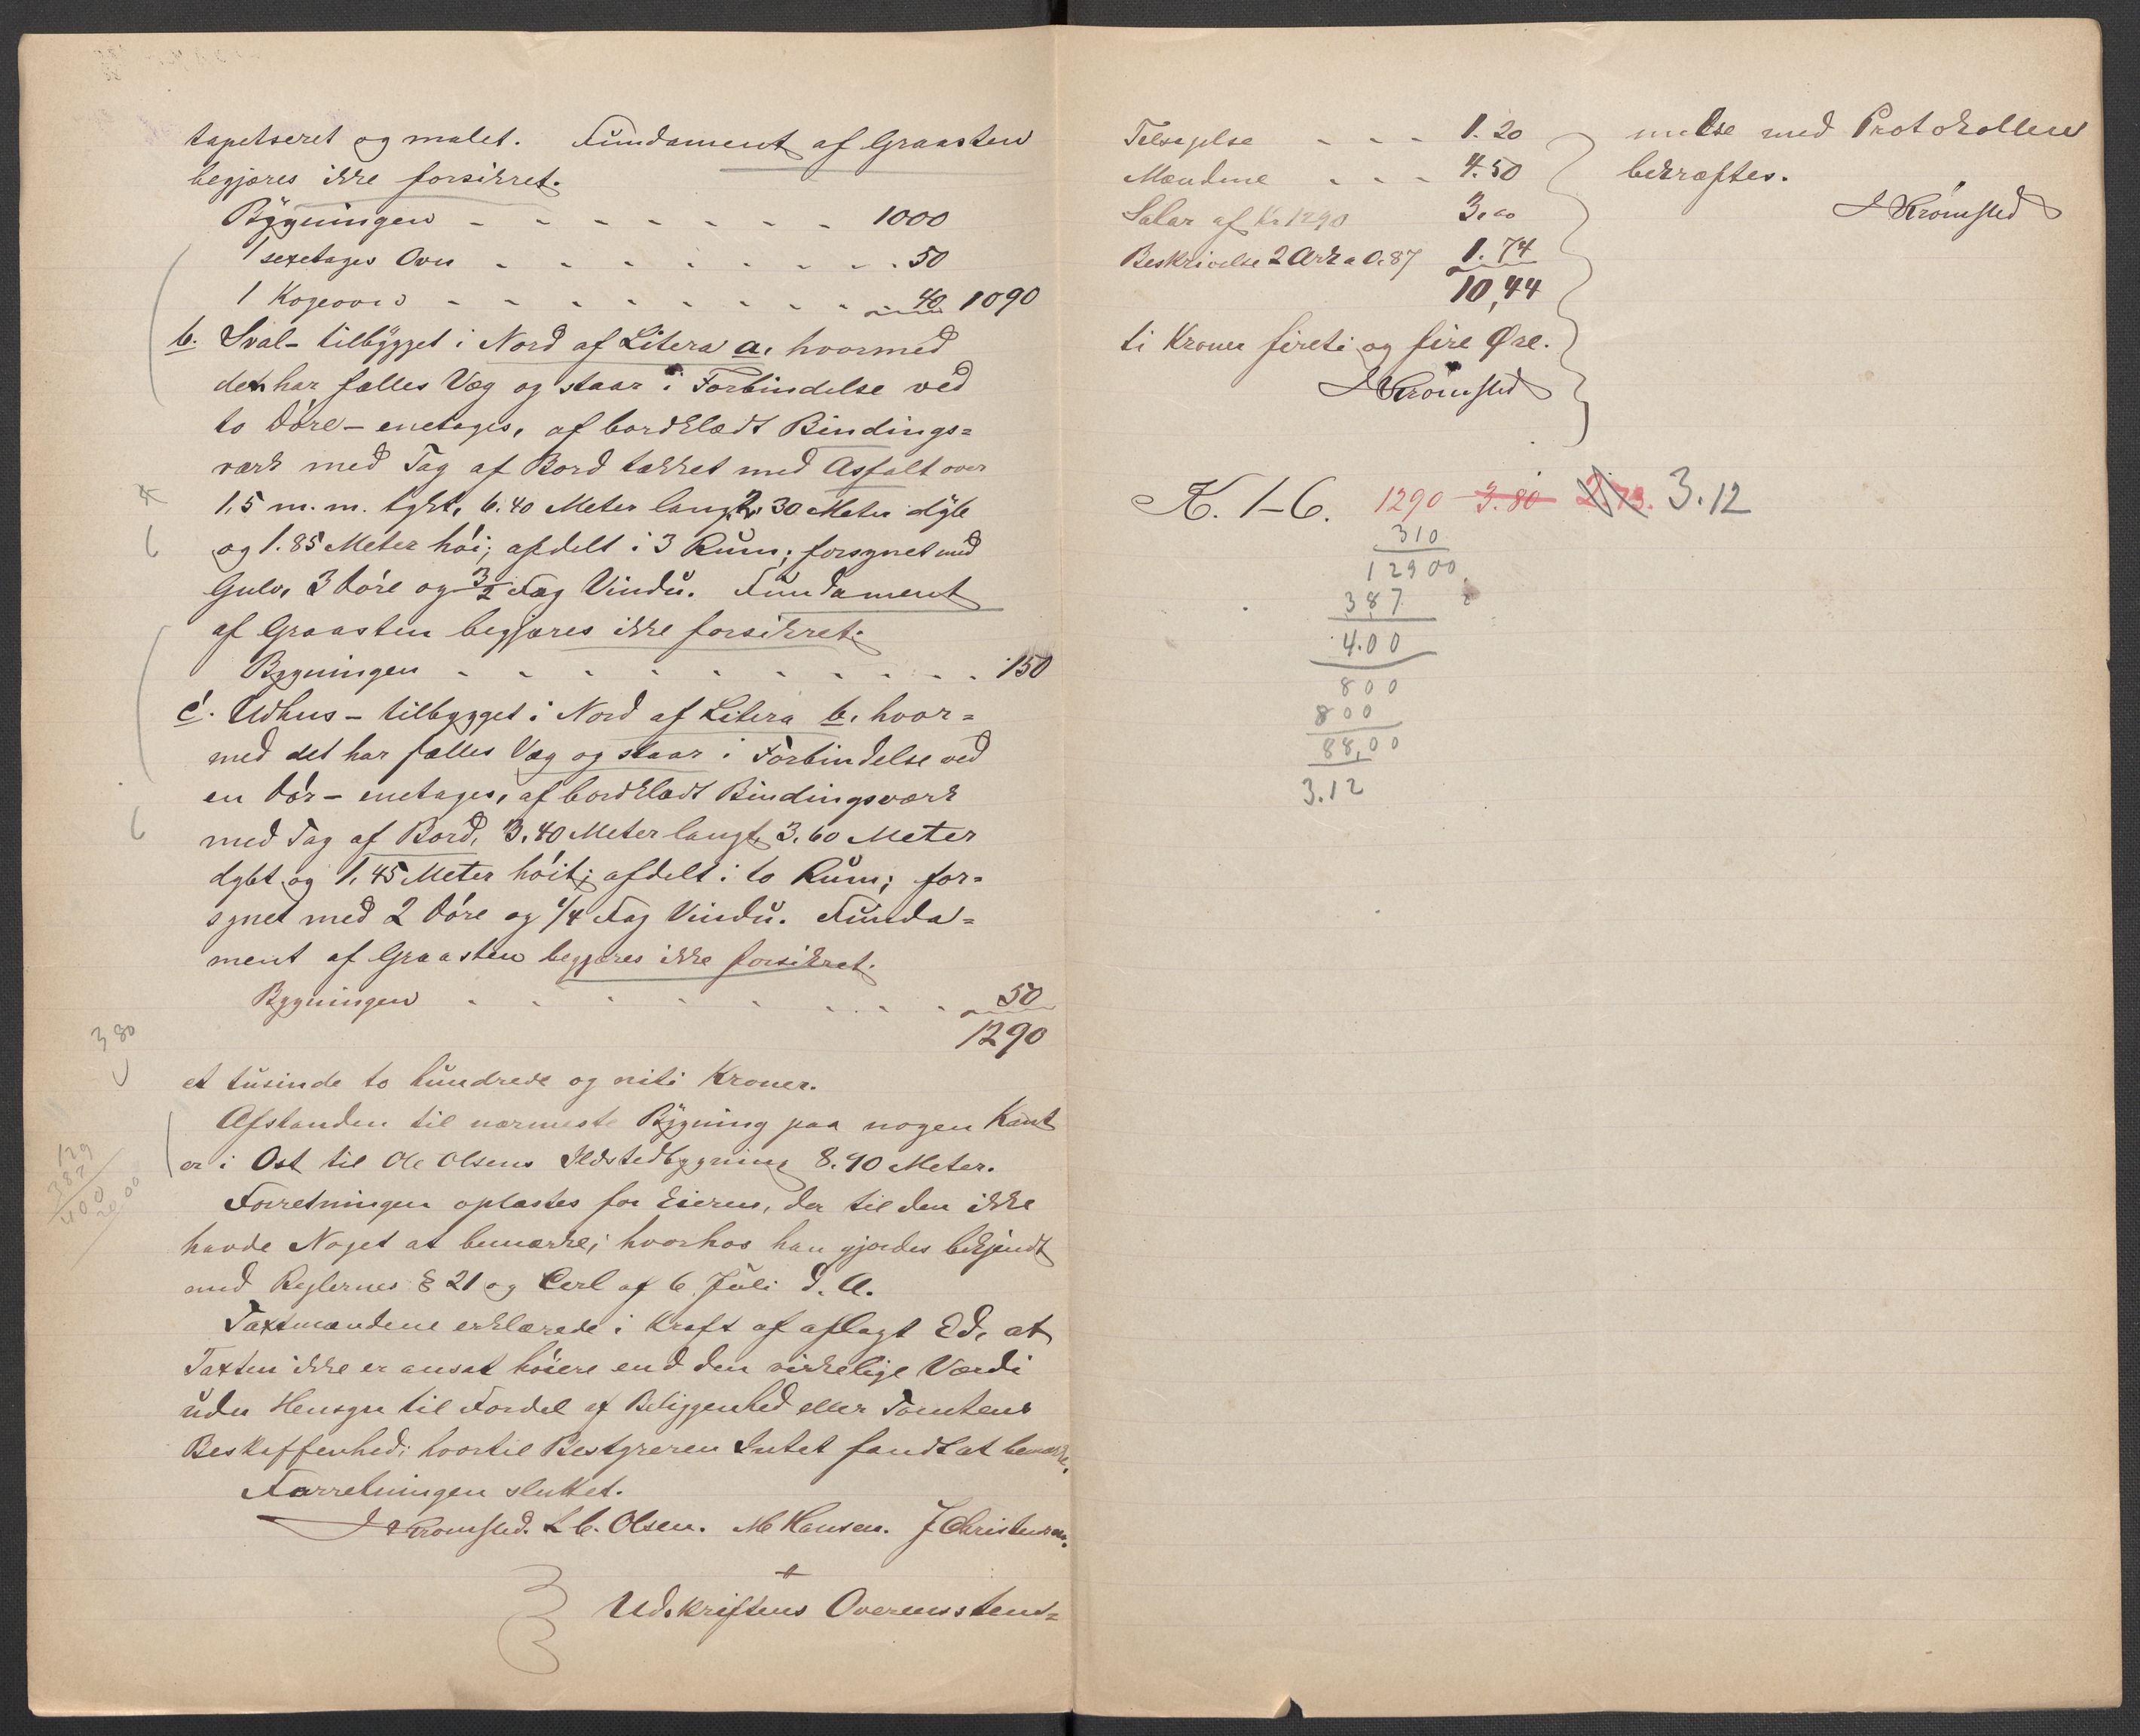 tapetseret og malet. Fundament af Graasten
begjæres ikke forsikret.
Bygningen - - - - - - - 1000
1 sexetages Ovn - - - - - - - 50
1 Kogeovn - - - - - - - 40 1090
b. Sval - tilbygget i Nord af Litera a, hvormed
det har fælles Væg og staar i Forbindelse ved
to Døre - enetages, af bordklædt Bindings=
værk med Tag af Bord tækket med Asfalt over
15 m.m. tykt, 6.40 Meter langt, 2.30 Meter dybt
og 1.85 Meter høi; afdelt i 3 Rum; forsynet med
Gulv, 3 Døre og 3/2 Fag Vindu. Fundament
af Graasten begjæres ikke forsikret.
Bygningen - - - - - - - - 150
c. Udhus - tilbygget i Nord af Litera b, hvor=
med det har fælles Væg og staar i Forbindelse ved
en Dør - enetages, af bordklædt Bindingsværk
med Tag af Bord, 3.40 Meter langt, 3.60 Meter
dybt og 1.45 Meter høit; afdelt i to Rum; for=
synet med 2 Døre og 1/4 Fag Vindu. Funda=
ment af Graasten begjæres ikke forsikret.
Bygningen - - - - - - - - 50
1290
3 80
et tusinde to hundrede og niti Kroner.
Afstanden til nærmeste Bygning paa nogen Kant
er i Øst til Ole Olsens Ildstedbygning 8.90 Meter.
129
387
400
20 00
Forretningen oplæstes for Eieren, der til den ikke
havde Noget at bemærke; hvorhos han gjordes bekjendt
med Reglernes § 21 og Circl af 6 Juli d. A.
Taxtmændene erklærede i Kraft af aflagt Ed, at
Taxten ikke er ansat høiere end den virkelige Værdi
uden Hensyn til Fordel af Beliggenhed eller Tomtens
Beskaffenhed; hvortil Bestyreren Intet fandt at bemærke.
Forretningen sluttet.
J Krømsted. L C. Olsen. M Hansen. J Christensen.
Udskriftens Overensstem=
melse med Protokollen
bekræftes.
J Krømsted
Tilsigelse - - - 1.20
Mændene - - - 4.50
Salær af Kr 1290 3.00
Beskrivelse 2 Ark a 0.87 1.74
10,44
ti Kroner fireti og fire Øre.
J Krømsted
K. 1-6. 1290 3.80 2.73. 3.12
310
12900
387
4.00
800
800
88,00
3.12